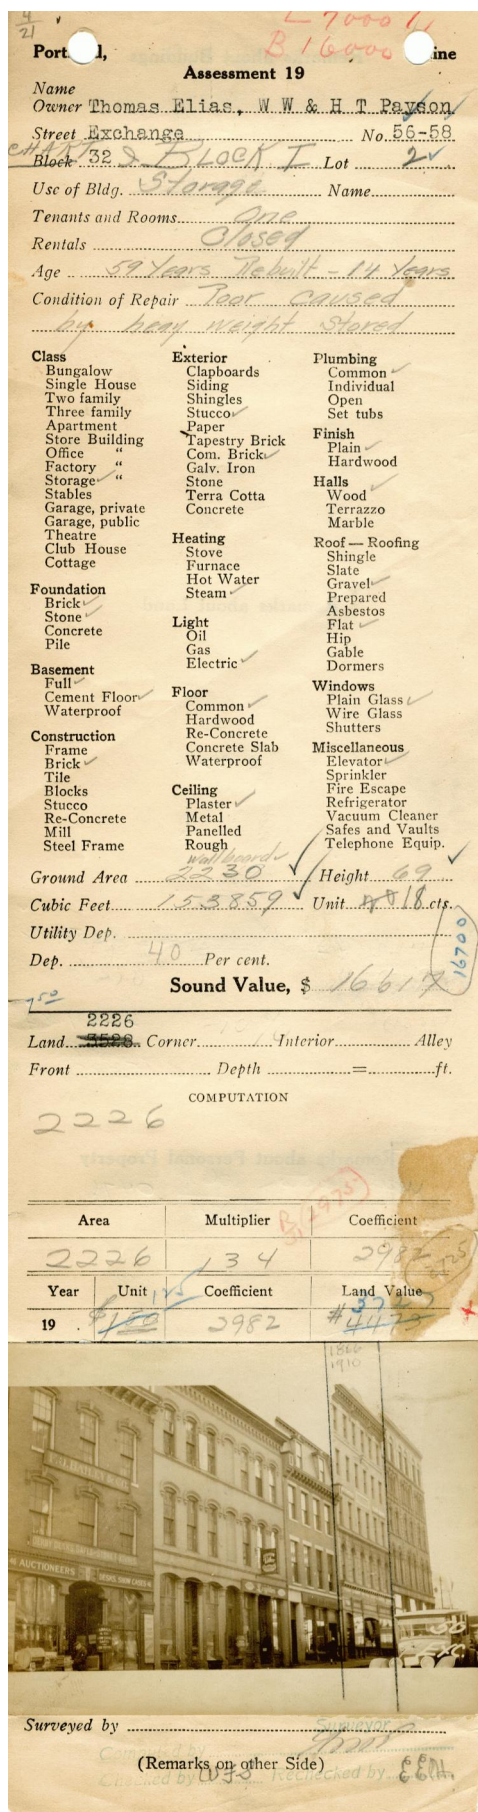 4/21
L 7000
B 16000
Assessment 19
Name
Owner Thomas Elias, W W & H T Payson
Street Exchange No. 56-58
CHART
Block 32 & BLOCK I Lot 2
Use of Bldg. Storage Name
Tenants and Rooms One
Rentals Closed
Age 59 Years Rebuilt - 14 Years
Condition of Repair Poor caused
by heay weight stored
Class
Bungalow
Single House
Two family
Three family
Apartment
Store Building
Office "
Factory "
Storage "
Stables
Garage, private
Garage, public
Theatre
Club House
Cottage
Foundation
Brick
Stone
Concrete
Pile
Basement
Full
Cement Floor
Waterproof
Construction
Frame
Brick
Tile
Blocks
Stucco
Re-Concrete
Mill
Steel Frame
Exterior
Clapboards
Siding
Shingles
Stucco
Paper
Tapestry Brick
Com. Brick
Galv. Iron
Stone
Terra Cotta
Concrete
Heating
Stove
Furnace
Hot Water
Steam
Light
Oil
Gas
Electric
Floor
Common
Hardwood
Re-Concrete
Concrete Slab
Waterproof
Ceiling
Plaster
Metal
Panelled
Rough
wall board
Plumbing
Common
Individual
Open
Set tubs
Finish
Plain
Hardwood
Halls
Wood
Terrazzo
Marble
Roof — Roofing
Shingle
Slate
Gravel
Prepared
Asbestos
Flat
Hip
Gable
Dormers
Windows
Plain Glass
Wire Glass
Shutters
Miscellaneous
Elevator
Sprinkler
Fire Escape
Refrigerator
Vacuum Cleaner
Safes and Vaults
Telephone Equip.
Ground Area 2230 Height 69
Cubic Feet 153859 Unit 18 cts.
Utility Dep.
Dep. 40 Per cent.
16700
Sound Value, $ 16617
2226
Land 3528 Corner Interior Alley
Front Depth = ft.
COMPUTATION
2226
Area Multiplier Coefficient
2226 134 2982
Year Unit Coefficient Land Value
125
19 . $1.50 2982 $
1866
1910
AUCTIONEERS
DESKS, SHOW CASES
56
EXC
Surveyed by
Surveyor
(Remarks on other Side)
Checked by WFS Rechecked by EEH.